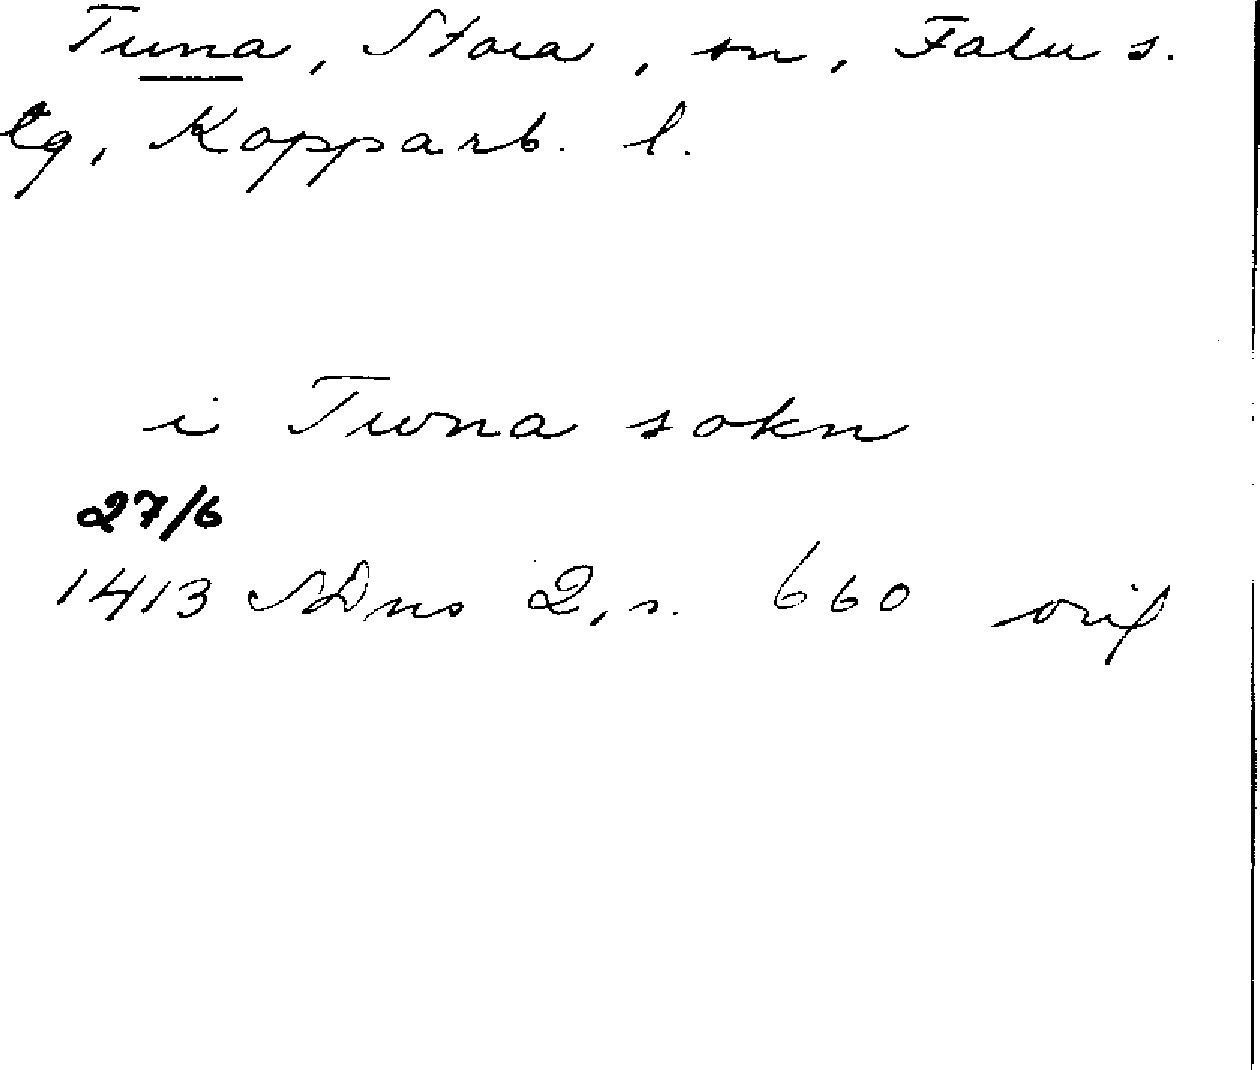 Tuna, Stora, sn, Falu s.
tg, Kopparb. l.
i Twna sokn
27/6
1413 SDns 2, s. 660 orig